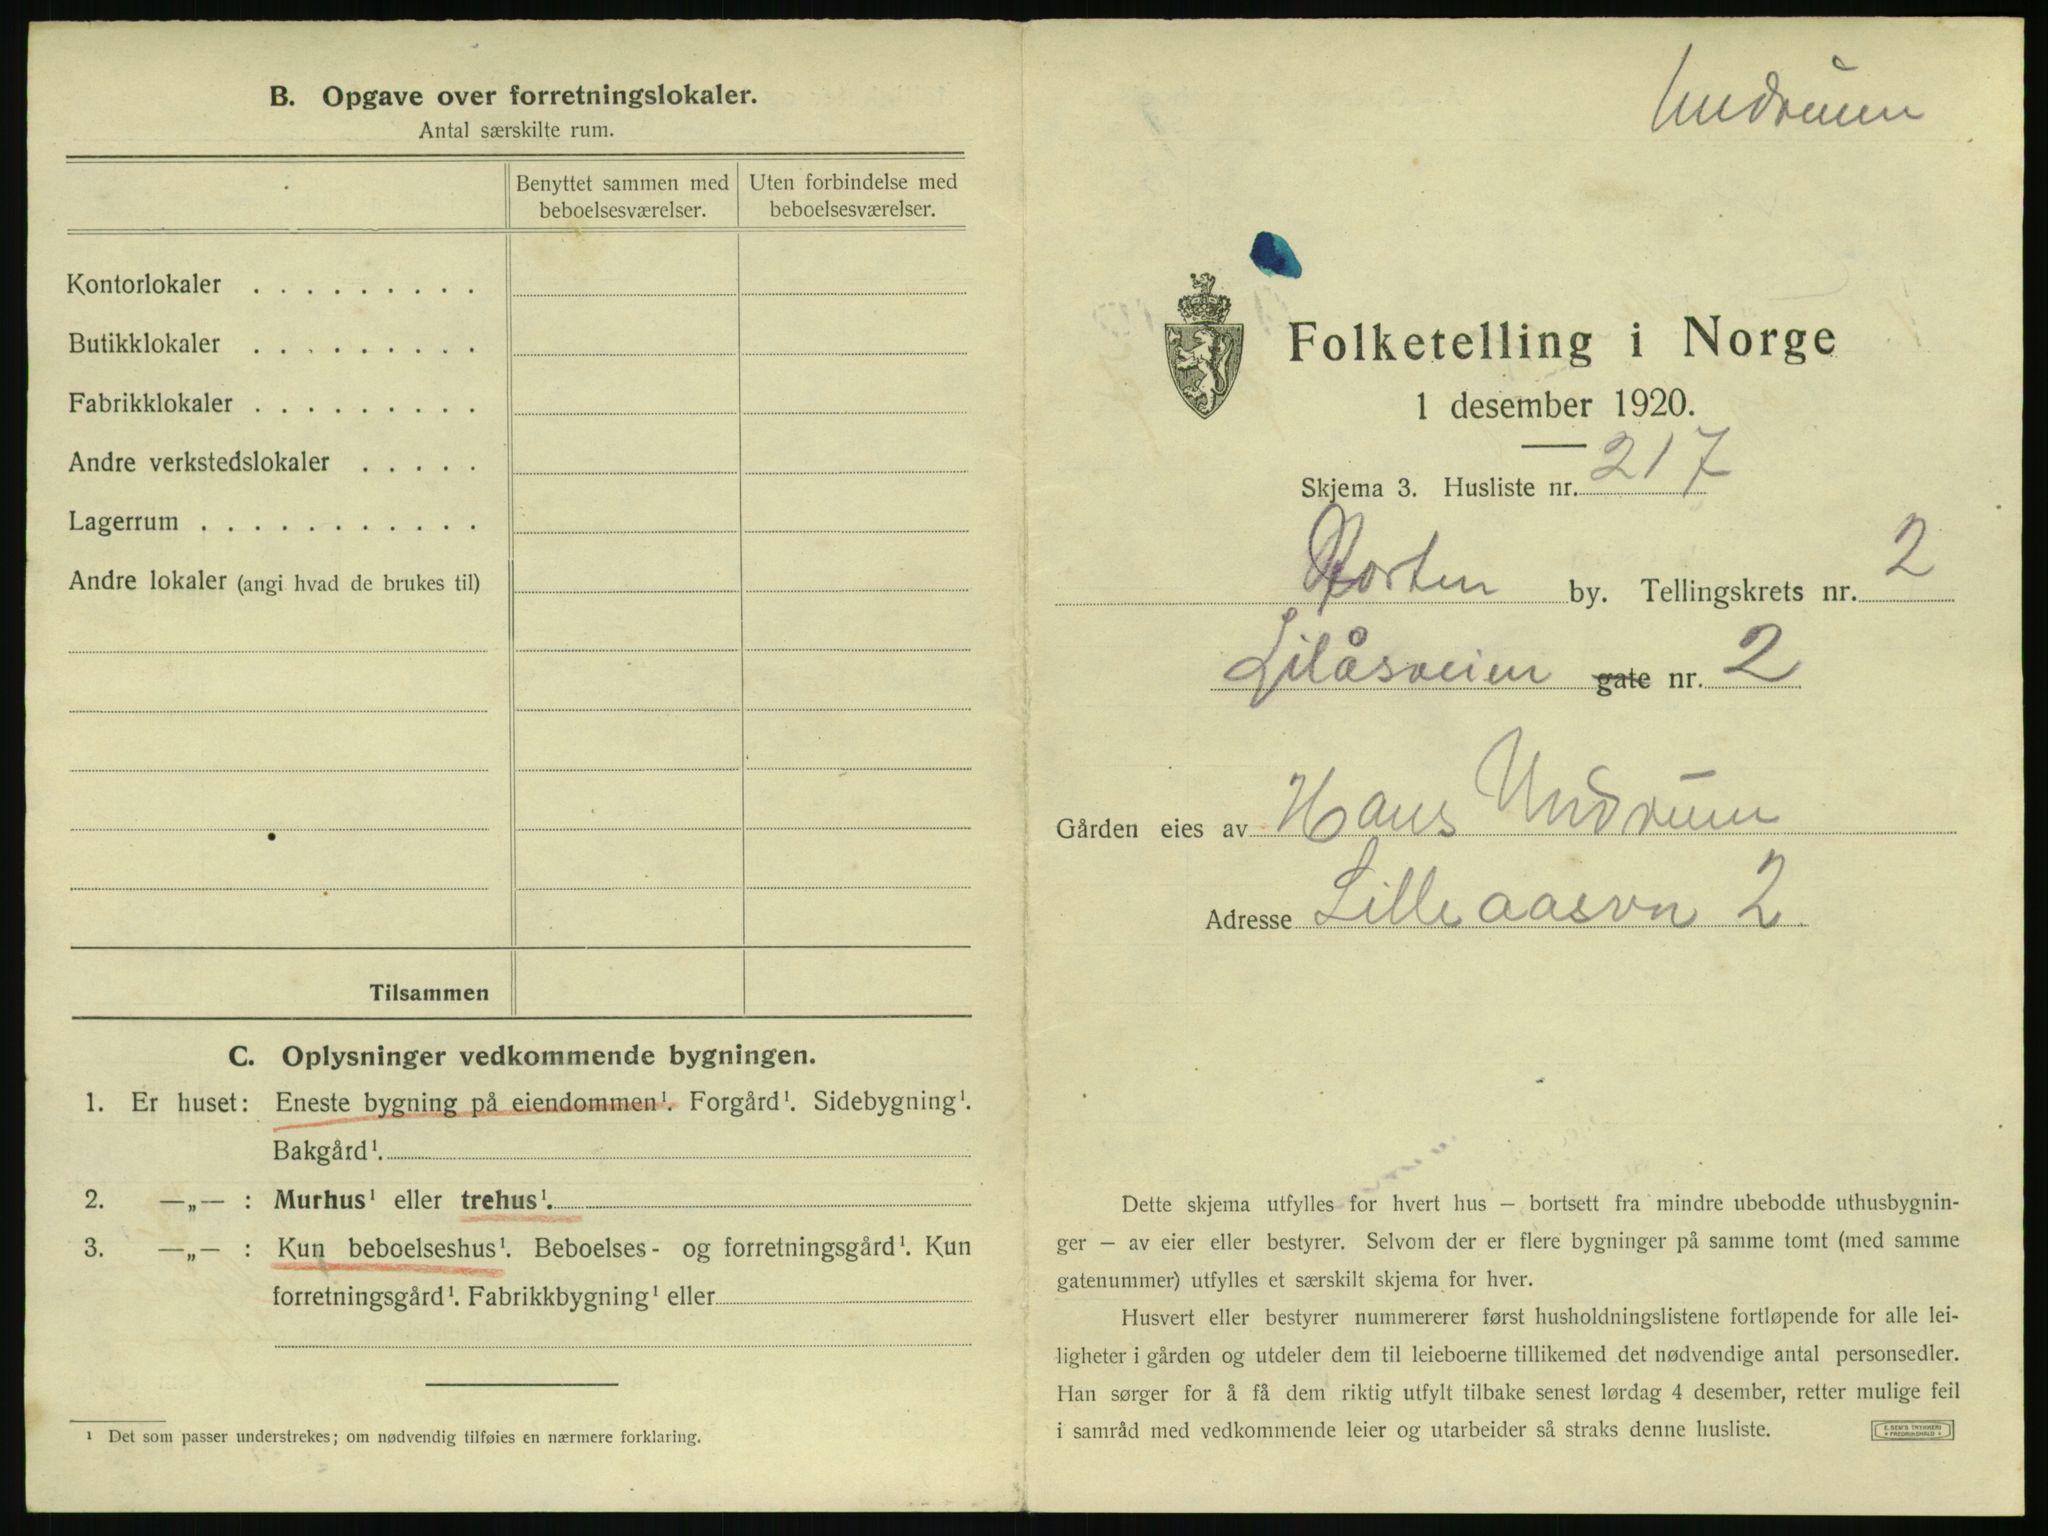 B. Opgave over forretningslokaler.
Antal særskilte rum.
Benyttet sammen med beboelsesværelser.
Uten forbindelse med beboelsesværelser.
Kontorlokaler . . . . . . . . .
Butikklokaler . . . . . . . . .
Fabrikklokaler . . . . . . . . .
Andre verkstedslokaler . . . . .
Lagerrum . . . . . . . . . . . .
Andre lokaler (angi hvad de brukes til)
Tilsammen
C. Oplysninger vedkommende bygningen.
1. Er huset: Eneste bygning på eiendommen¹. Forgård¹. Sidebygning¹.
Bakgård¹.
2. —„— : Murhus¹ eller trehus¹.
3. —„— : Kun beboelseshus¹. Beboelses- og forretningsgård¹. Kun
forretningsgård¹. Fabrikkbygning¹ eller
¹ Det som passer understrekes; om nødvendig tilføies en nærmere forklaring.
Undrum
Folketelling i Norge
1 desember 1920.
Skjema 3. Husliste nr. 217
Horten by. Tellingskrets nr. 2
Lilåsveien gate nr. 2
Gården eies av Hans Undrum
Adresse Lilleaasvn 2
Dette skjema utfylles for hvert hus – bortsett fra mindre ubebodde uthusbygnin-
ger – av eier eller bestyrer. Selvom der er flere bygninger på samme tomt (med samme
gatenummer) utfylles et særskilt skjema for hver.
Husvert eller bestyrer nummererer først husholdningslistene fortløpende for alle lei-
ligheter i gården og utdeler dem til leieboerne tillikemed det nødvendige antal personsedler.
Han sørger for å få dem riktig utfylt tilbake senest lørdag 4 desember, retter mulige feil
i samråd med vedkommende leier og utarbeider så straks denne husliste.
E. SEM'S TRYKKERI
FREDRIKSHALD